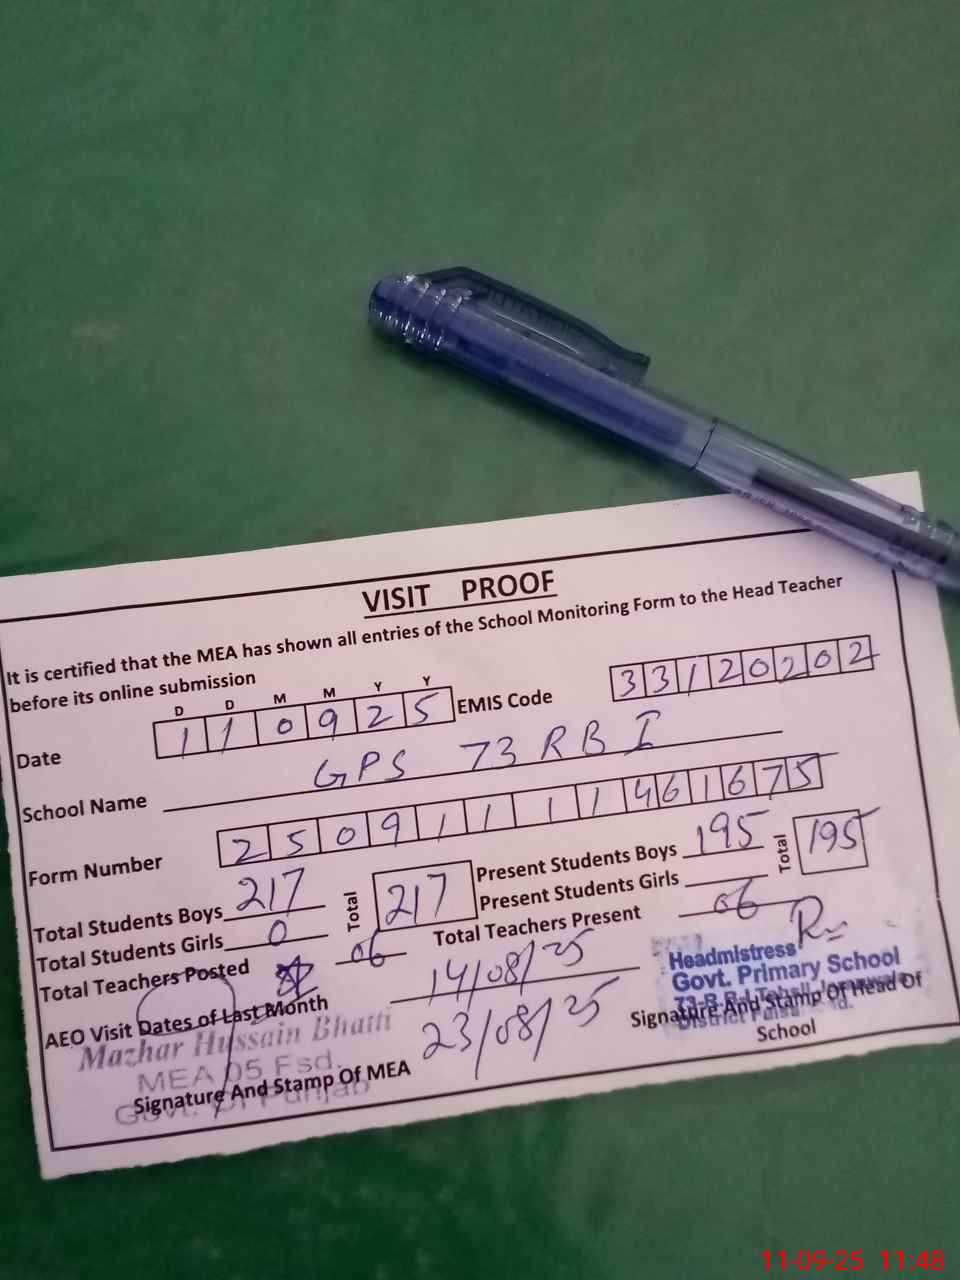 VISIT PROOF
It is certified that the MEA has shown all entries of the School Monitoring Form to the Head Teacher
before its online submission
D D M M Y Y
Date 1 1 0 9 2 5 EMIS Code 3 3 1 2 0 2 0 2
School Name GPS 73 RB I
Form Number 2 5 0 9 1 1 1 1 4 6 1 6 7 5
Total Students Boys 217 Total 217 Present Students Boys 195 Total 195
Total Students Girls 0 Present Students Girls
Total Teachers Posted 06 Total Teachers Present 06
AEO Visit Dates of Last Month 14/08/25
23/08/25
Mazhar Hussain Bhatti
MEA 05 Fsd.
Govt. Of Punjab
Signature And Stamp Of MEA
Headmistress
Govt. Primary School
73-R.B-I Tehsil
District
Signature And Stamp Of Head Of
School
11-09-25 11:48